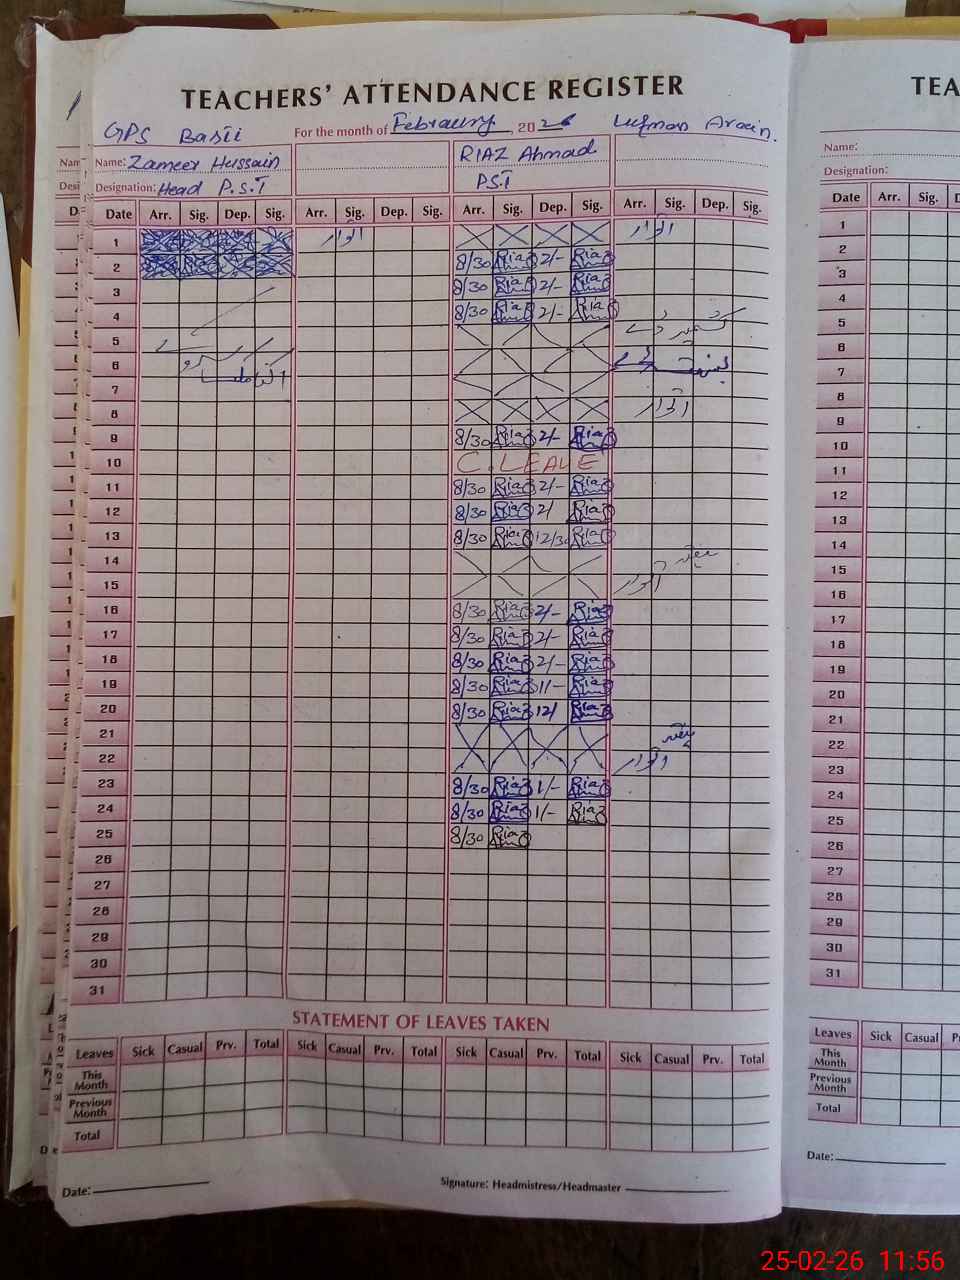 TEACHERS' ATTENDANCE REGISTER
GPS Basti For the month of February, 2026 Luqman Arain.
Name: Zameer Hussain RIAZ Ahmad
Designation: Head P.S.T PST
Date Arr. Sig. Dep. Sig. Arr. Sig. Dep. Sig. Arr. Sig. Dep. Sig. Arr. Sig. Dep. Sig.
1 اتوار اتوار
2 8/30 Riaz 2/- Riaz
3 8/30 Riaz 2/- Riaz
4 8/30 Riaz 2/- Riaz
5 کشمیر ڈے
6
7
8 اتوار
9 8/30 Riaz 2/- Riaz
10 C. LEAVE
11 8/30 Riaz 2/- Riaz
12 8/30 Riaz 2/ Riaz
13 8/30 Riaz 12/30 Riaz
14 ہفتہ
15 اتوار
16 8/30 Riaz 2/- Riaz
17 8/30 Riaz 2/- Riaz
18 8/30 Riaz 2/- Riaz
19 8/30 Riaz 1/- Riaz
20 8/30 Riaz 12/ Riaz
21 ہفتہ
22 اتوار
23 8/30 Riaz 1/- Riaz
24 8/30 Riaz 1/- Riaz
25 8/30 Riaz
26
27
28
29
30
31
STATEMENT OF LEAVES TAKEN
Leaves Sick Casual Prv. Total Sick Casual Prv. Total Sick Casual Prv. Total Sick Casual Prv. Total
This Month
Previous Month
Total
Date: Signature: Headmistress/Headmaster
TEA
Name:
Designation:
Date Arr. Sig.
1
2
3
4
5
6
7
8
9
10
11
12
13
14
15
16
17
18
19
20
21
22
23
24
25
26
27
28
29
30
31
Leaves Sick Casual
This Month
Previous Month
Total
Date:
25-02-26 11:56